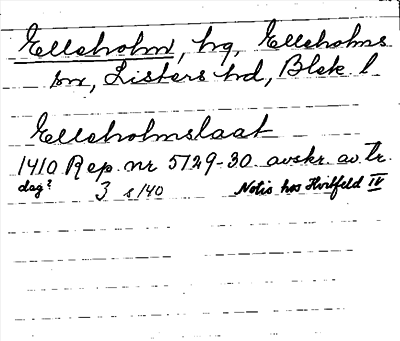 Elleholm, hg, Elleholms
sn, Listers hd, Blek. l
Elleholmslaat
1410 Rep. nr 5729-30 avskr. av tr.
dag? 3 s 140 Notis hos Hvitfeld IV